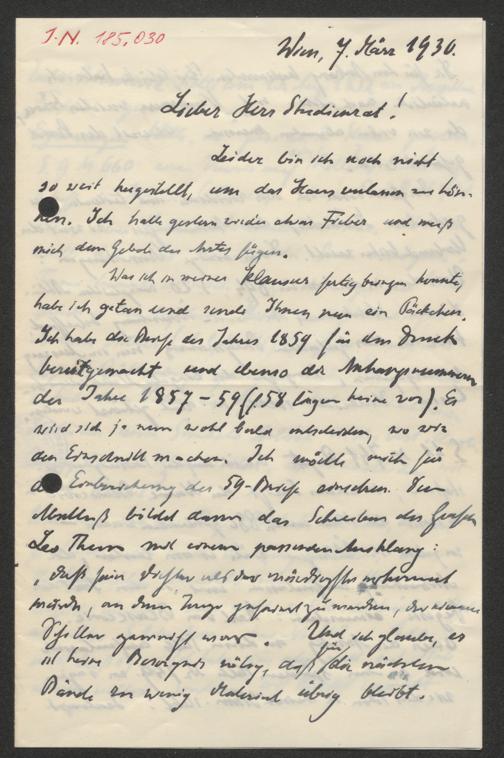 I.N. 185.030
Wien, 7. März 1930.
Lieber Herr Studienrat!
Leider bin ich noch nicht
so weit hergestellt, um das Haus verlassen zu kön-
nen. Ich hatte gestern wieder etwas Fieber und muß
mich dem Gebote des Arztes fügen.
Was ich in meiner Klausur fertig bringen konnte,
habe ich getan und sende Ihnen nun ein Päckchen.
Ich habe die Briefe des Jahres 1859 für den Druck
bereitgemacht und ebenso die Anhangnummern
der Jahre 1857-59 (58 liegen keine vor). Es
wird sich ja nun wohl bald entscheiden, wo wir
den Einschnitt machen. Ich möchte mich für
die Einbeziehung der 59-Briefe einsetzen. Den
Abschluß bildet dann das Schreiben des Grafen
Leo Thun mit einem passenden Ausklang:
"daß sein Dichter als der würdigste erkannt
würde, an dem Tage gefeiert zu werden, der
Schiller geweiht war". Und ich glaube, es
ist keine Besorgnis nötig, daß für die nächsten
Bände zu wenig Material übrig bleibt.